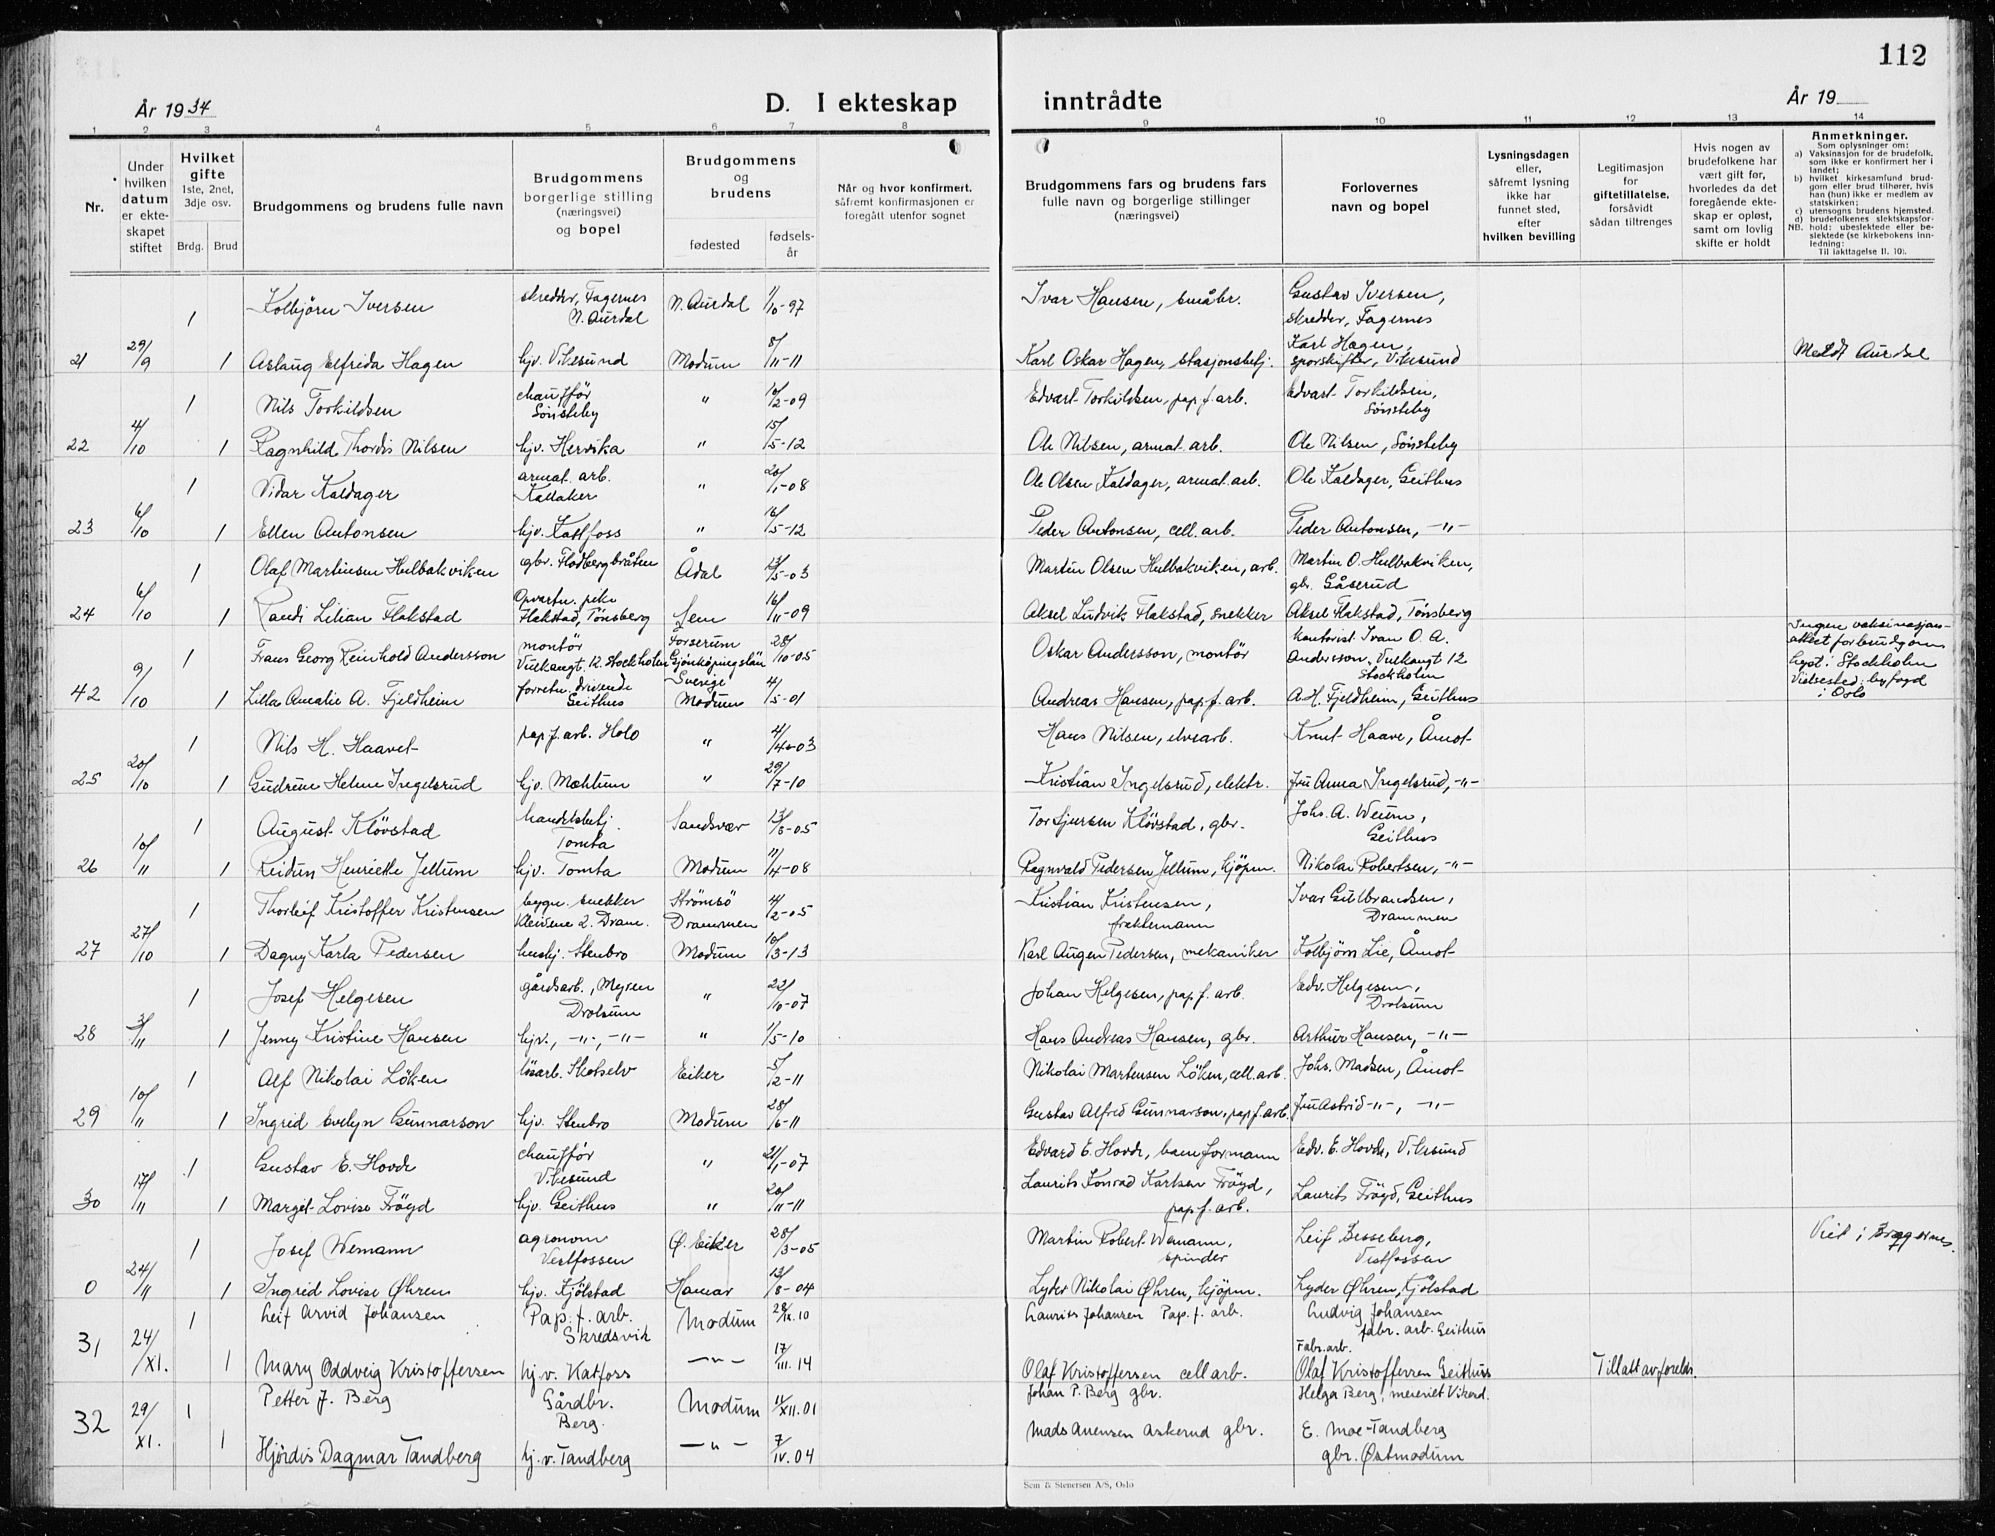 112
År 1934
D. I ekteskap inntrådte
År 19
1 2 3 4 5 6 7 8 9 10 11 12 13 14
Nr.
Under hvilken datum er ekteskapet stiftet
Hvilket gifte 1ste, 2net, 3dje osv.
Brdg. Brud
Brudgommens og brudens fulle navn
Brudgommens borgerlige stilling (næringsvei) og bopel
Brudgommens og brudens
fødested
fødselsår
Når og hvor konfirmert, såfremt konfirmasjonen er foregått utenfor sognet
Brudgommens fars og brudens fars fulle navn og borgerlige stillinger (næringsvei)
Forlovernes navn og bopel
Lysningsdagen eller, såfremt lysning ikke har funnet sted, efter hvilken bevilling
Legitimasjon for giftetillatelse, forsåvidt sådan tiltrenges
Hvis nogen av brudefolkene har vært gift før, hvorledes da det foregående ekteskap er opløst, samt om lovlig skifte er holdt
Anmerkninger.
Som oplysninger om:
a) Vaksinasjon for de brudefolk, som ikke er konfirmert her i landet;
b) hvilket kirkesamfund brudgom eller brud tilhører, hvis han (hun) ikke er medlem av statskirken;
c) utensogns brudens hjemsted.
d) brudefolkenes slektskapsforhold: ubeslektede eller beslektede (se kirkebokens innledning:
NB.
Til iakttagelse II. 10).
1 Kolbjörn Iversen skredder, Fagernes N. Aurdal N. Aurdal 1/10-97 Ivar Hansen, småbr. Gustav Iversen, skredder, Fagernes
21 29/9 1 Aslaug Elfrida Hagen hjv. Vikesund Modum 8/11-11 Karl Oskar Hagen, stasjonsbetj. Karl Hagen, sporskifter, Vikesund Meldt Aurdal
1 Nils Torkildsen chaufför Sønsteby " 10/2-09 Edvart Torkildsen, pap.f.arb. Edvart Torkildsen, Sønsteby
22 4/10 1 Ragnhild Thordis Nilsen hjv. Hervika " 15/5-12 Ole Nilsen, armat. arb. Ole Nilsen, Sønsteby
1 Vidar Kaldager armat. arb. Kallaker " 20/1-08 Ole Olsen Kaldager, armat. arb. Ole Kaldager, Geithus
23 6/10 1 Ellen Antonsen hjv. Katfoss " 16/5-12 Peder Antonsen, cell. arb. Peder Antonsen, -"-
1 Olaf Martinsen Hulbakviken gbr. Flodbergbråten Ådal 13/5-03 Martin Olsen Hulbakviken, arb. Martin O. Hulbakviken, gbr. Gåserud
24 6/10 1 Randi Lilian Flakstad Opvartn. pike Flakstad, Tønsberg Sem 16/11-09 Aksel Ludvik Flakstad, snekker Aksel Flakstad, Tønsberg
1 Frans Georg Reinhold Andersson montör Vulkangt. 12 Stockholm Forserum Gjönköpingslän Sverige 28/10-05 Oskar Andersson, montör kontorist Ivan O. A. Andersson, Vulkangt 12 Stockholm Ingen vaksinasjonsattest for brudgom. Lyst i Stockholm Vielsested: byfogd i Oslo
42 9/10 1 Lilla Amalie A. Fjeldheim forretn. drivende Geithus Modum 4/5-01 Andreas Hansen, pap.f. arb. A.H. Fjeldheim, Geithus
1 Nils H. Haavet pap.f.arb. Holo " 4/10-03 Hans Nilsen, elvearb. Knut Haave, Åmot
25 20/10 1 Gudrun Helene Ingelsrud hjv. Mæhlum " 29/7-10 Kristian Ingelsrud, elektr. fru Anna Ingelsrud, -"-
1 August Klövstad handelsbetj. Tomta Sandsvær 13/8-05 Tor Sjursen Klövstad, gbr. Johs. A. Weum, Geithus
26 10/11 1 Reidun Henriette Jellum hjv. Tomta Modum 11/4-08 Ragnvald Pedersen Jellum, kjöpm. Nikolai Robertsen, -"-
1 Thorleif Kristoffer Kristensen bygn. snekker Kleivene 2. Dram. Strömsö Drammen 4/2-05 Kristian Kristensen, fraktemann Ivar Gulbrandsen, Drammen
27 27/10 1 Dagny Karla Pedersen hushj. Stenbro Modum 10/3-13 Karl Augen Pedersen, mekaniker Kolbjörn Lie, Åmot
1 Josef Helgesen gårdsarb., Myren Drolsum " 22/10-07 Johan Helgesen, pap.f. arb. Edv. Helgesen, Drolsum
28 3/11 1 Jenny Kristine Hansen hjv., -"-, -"- " 1/5-10 Hans Andreas Hansen, gbr. Arthur Hansen, -"-
1 Alf Nikolai Löken lösarb. Skotselv Eiker 5/12-11 Nikolai Martensen Löken, cell. arb. Johs. Madsen, Åmot
29 10/11 1 Ingrid Evelyn Gunnarson hjv. Stenbro Modum 28/6-11 Gustav Alfred Gunnarson, pap.f.arb. fru Astrid -"-, -"-
1 Gustav E. Hovde chaufför Vikesund " 21/1-07 Edvard E. Hovde, baneformann Edv. E. Hovde, Vikesund
30 17/11 1 Margit Lovise Frögd hjv. Geithus " 20/11-11 Laurits Konrad Karlsen Frögd, pap.f. arb. Laurits Frögd, Geithus
1 Josef Wemann agronom Vestfossen Ø. Eiker 28/3-05 Martin Robert Wemann, spinder Leif Besseberg, Vestfossen Viet i Bragernes.
0 24/11 1 Ingrid Lovise Øhren hjv. Kjölstad Hamar 13/8-04 Lyder Nikolai Øhren, kjöpm. Lyder Øhren, Kjölstad
1 Leif Arvid Johansen Pap.f. arb. Skredsvik Modum 28/IX.10 Laurits Johansen Pap.f. arb. Ludvig Johansen fabr. arb. Geithus
31 24/XI. 1 Mary Oddveig Kristoffersen hj.v. Katfoss -"- 17/III.14 Olaf Kristoffersen cell arb. Fabr.arb. Olaf Kristoffersen Geithus Tillatt av foreldr.
1 Petter J. Berg Gårdbr. Berg. Modum 11/XII.01 Johan P. Berg gbr. Helga Berg, meieriet Vikerd.
32 29/XI. 1 Hjördis Dagmar Tandberg hj.v. Tandberg -"- 7/IV.04 Mads Anensen Askerud gbr. E. Moe-Tandberg gbr. Østmodum
Sem & Stenersen A/S, Oslo